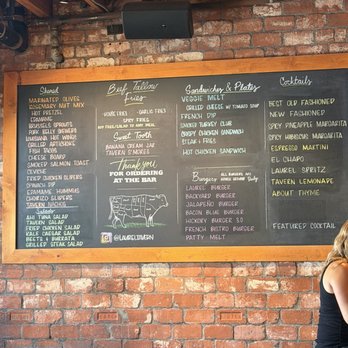 Shared
MARINATED OLIVES
ROSEMARY NUT MIX
HOT PRETZEL
EDAMAME
BRUSSELS SPROUTS
PORK BELLY SKEWERS
BUFFALO HOT WINGS
GRILLED ARTICHOKE
FISH TACOS
CHEESE BOARD
SMOKED SALMON TOAST
CEVICHE
FRIED CHICKEN SLIDERS
SPINACH DIP
EDAMAME HUMMUS
CHORIZO SLIDERS
TAVERN NACHOS
Salads
AHI TUNA SALAD
TAVERN SALAD
FRIED CHICKEN SALAD
KALE CAESAR SALAD
BEETS & BURRATA
GRILLED STEAK SALAD
Beef Tallow
Fries
HOUSE FRIES
GARLIC FRIES
SPICY FRIES
Sweet Tooth
BANANA CREAM JAR
TAVERN S'MORES
Thank you
FOR ORDERING
AT THE BAR
@LAURELTAVERN
Sandwiches & Plates
VEGGIE MELT
GRILLED CHEESE W/ TOMATO SOUP
FRENCH DIP
SMOKED TURKEY CLUB
CRISPY CHICKEN SANDWICH
STEAK + FRIES
HOT CHICKEN SANDWICH
Burgers
ALL BURGERS ARE
LAUREL BURGER
BACKYARD BURGER
JALAPEÑO BURGER
BACON BLUE BURGER
HICKORY BURGER 2.0
FRENCH BISTRO BURGER
PATTY MELT
Cocktails
BEST OLD FASHIONED
NEW FASHIONED
SPICY PINEAPPLE MARGARITA
SPICY HIBISCUS MARGARITA
ESPRESSO MARTINI
EL CHAPO
LAUREL SPRITZ
TAVERN LEMONADE
ABOUT THYME
FEATURED COCKTAIL